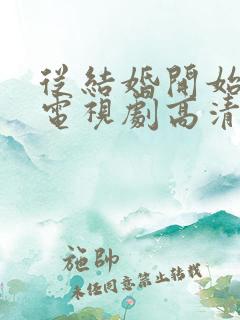 從結婚開始
電視劇高清
施帥
未經同意禁止轉載